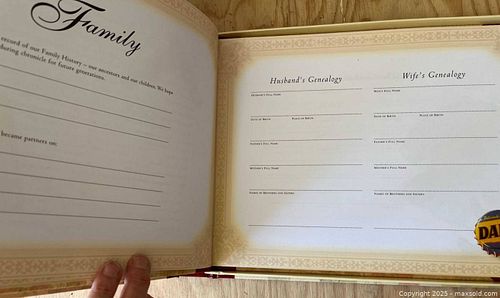 Family
record of our Family History – our ancestors and our children. We hope
during chronicle for future generations.
became partners on:
Husband's Genealogy
Husband's Full Name
Date of Birth Place of Birth
Father's Full Name
Mother's Full Name
Names of Brothers and Sisters
Wife's Genealogy
Wife's Full Name
Date of Birth Place of Birth
Father's Full Name
Mother's Full Name
Names of Brothers and Sisters
DA
Copyright 2025 - maxsold.com